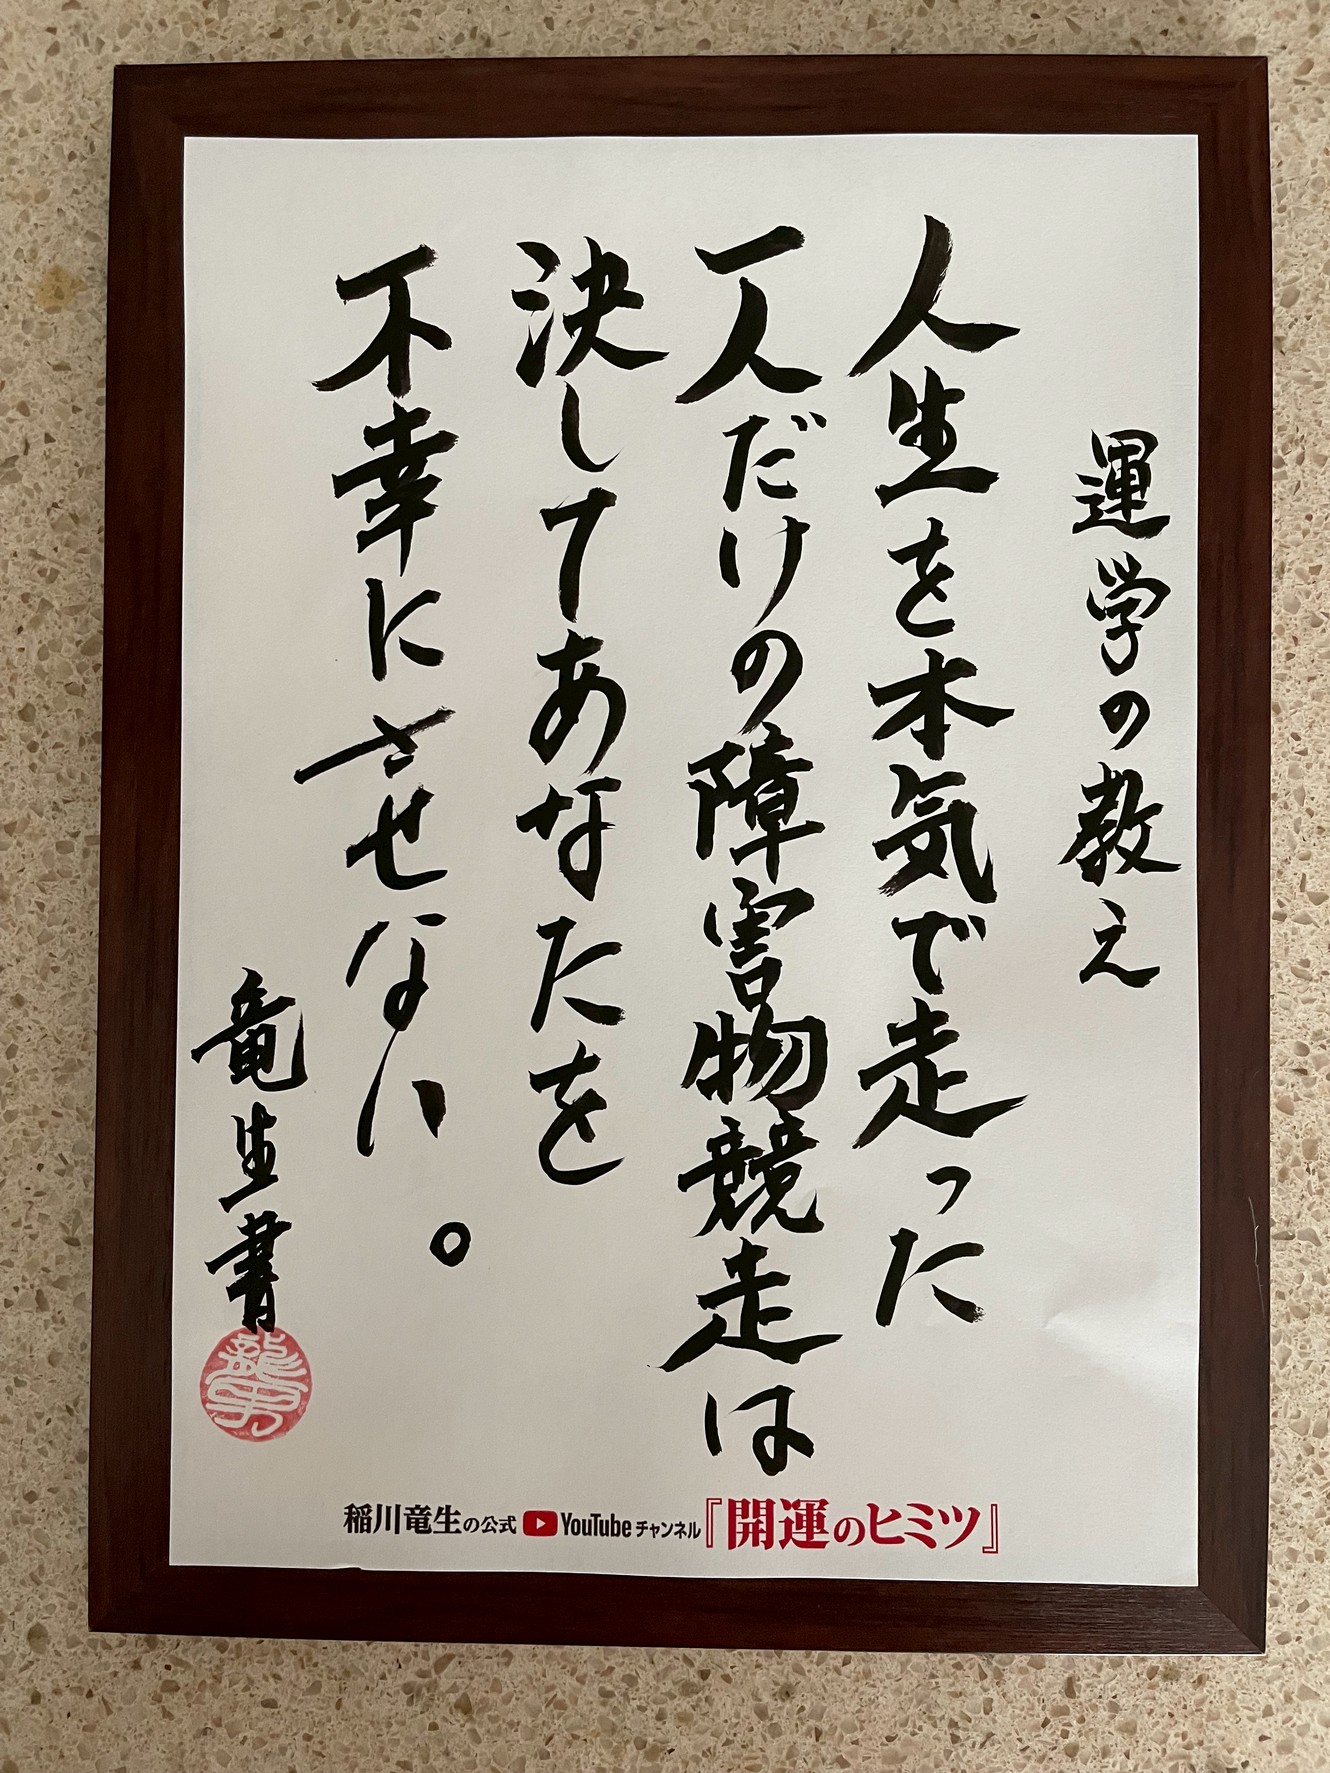 運学の教え
人生を本気で走った
一人だけの障害物競走は
決してあなたを
不幸にさせない。
竜生書
稲川竜生の公式 YouTube チャンネル『開運のヒミツ』